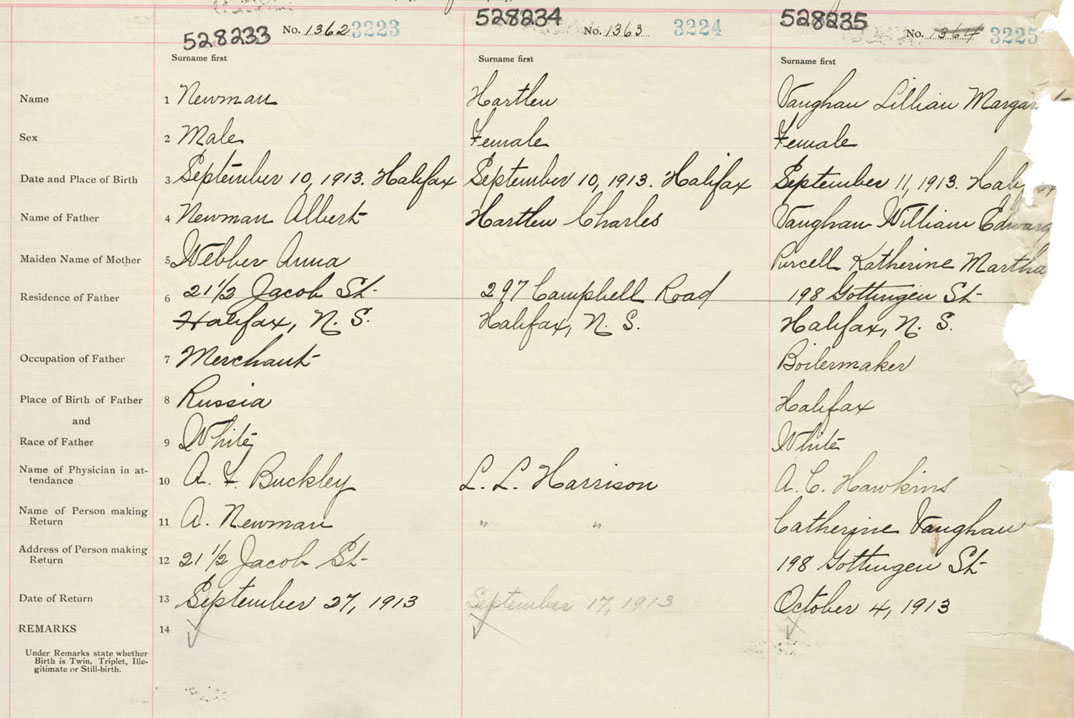 528233 No. 1362 3223 528234 No. 1363 3224 528235 No. 1364 3225
Surname first Surname first Surname first
Name 1 Newman Hartlen Vaughan Lillian Margaret
Sex 2 Male Female Female
Date and Place of Birth 3 September 10, 1913. Halifax September 10, 1913. Halifax September 11, 1913.
Name of Father 4 Newman Albert Hartlen Charles Vaughan William Edward
Maiden Name of Mother 5 Webber Anna Purcell Katherine Martha
Residence of Father 6 21 1/2 Jacob St. 297 Campbell Road 198 Gottingen St.
Halifax, N. S. Halifax, N. S. Halifax, N. S.
Occupation of Father 7 Merchant Boilermaker
Place of Birth of Father 8 Russia Halifax
and
Race of Father 9 White White
Name of Physician in at-
tendance 10 A. Buckley L. L. Harrison A. C. Hawkins
Name of Person making
Return 11 A. Newman " " Catherine Vaughan
Address of Person making
Return 12 21 1/2 Jacob St. 198 Gottingen St.
Date of Return 13 September 27, 1913 September 17, 1913 October 4, 1913
REMARKS 14
Under Remarks state whether
Birth is Twin, Triplet, Ille-
gitimate or Still-birth.